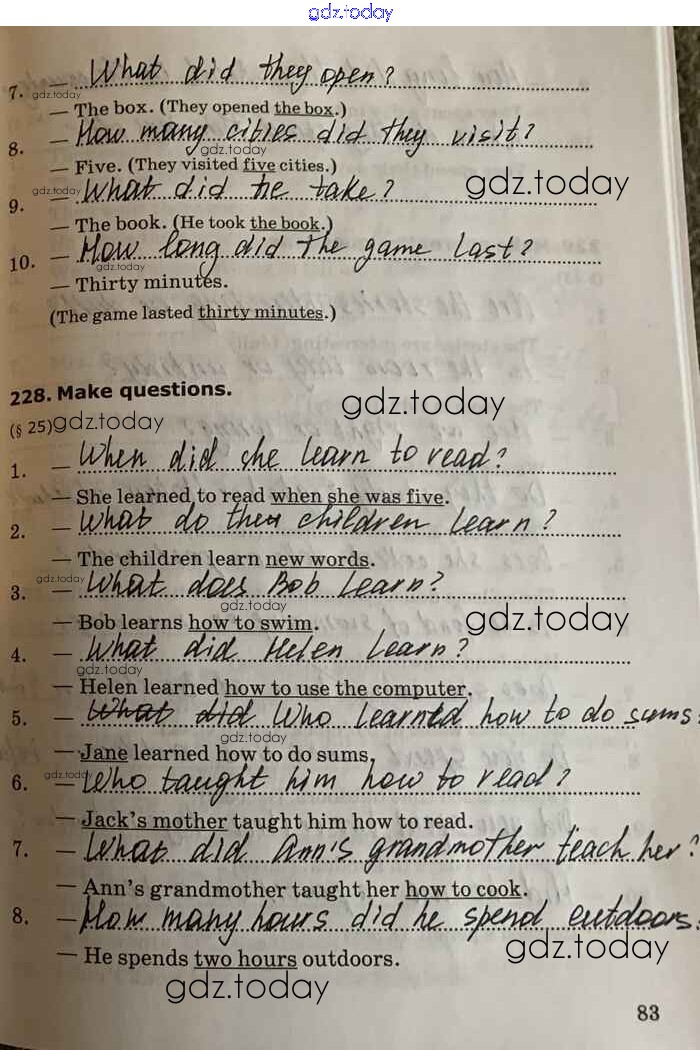 gdz.today
What did they open?
7. — gdz.today
— The box. (They opened the box.)
How many cities did they visit?
8. — gdz.today
— Five. (They visited five cities.)
gdz.today — What did he take? gdz.today
9.
— The book. (He took the book.)
How long did the game last?
10. — gdz.today
— Thirty minutes.
(The game lasted thirty minutes.)
228. Make questions.
gdz.today
(§ 25) gdz.today
1. — When did she learn to read?
— She learned to read when she was five.
2. — What do the children learn?
— The children learn new words.
3. gdz.today — What does Bob learn?
gdz.today
— Bob learns how to swim. gdz.today
4. — What did Helen learn?
gdz.today
— Helen learned how to use the computer.
5. — What did Who learned how to do sums
— Jane learned how to do sums. gdz.today
6. gdz.today — Who taught him how to read?
— Jack's mother taught him how to read.
7. — What did Ann's grandmother teach her?
— Ann's grandmother taught her how to cook.
8. — How many hours did he spend outdoors
gdz.today
— He spends two hours outdoors.
gdz.today
83